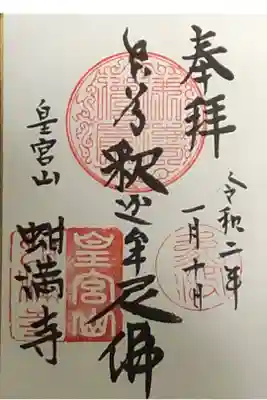 奉拝
令和二年
一月十日
南無釈迦牟尼佛
皇宮山
皇宮山
蚶満寺